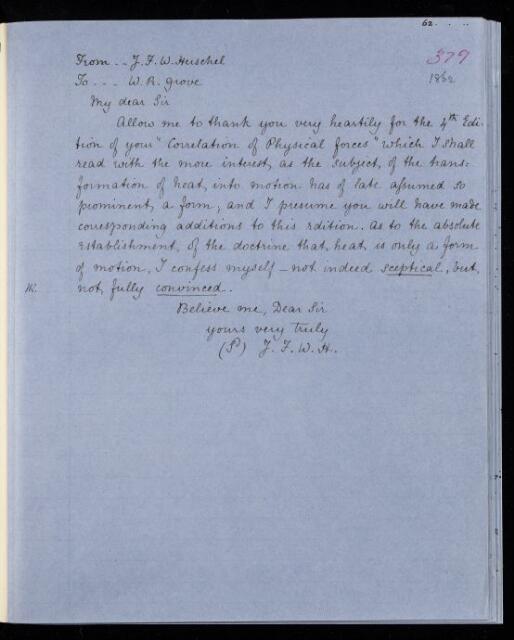 62. . ..
379
1862
From .. J. F. W. Herschel
To ... W. R. Grove
My dear Sir
Allow me to thank you very heartily for the 4th Edi-
tion of your "Correlation of Physical forces" which I shall
read with the more interest, as the subject, of the trans=
formation of heat, into motion has of late assumed so
prominent, a form, and I presume you will have made
corresponding additions to this edition. As to the absolute
establishment, of the doctrine that, heat, is only a form
of motion, I confess myself - not indeed sceptical, but,
not, fully convinced.
Believe me, Dear Sir
yours very truly
(S) J. F. W. H.